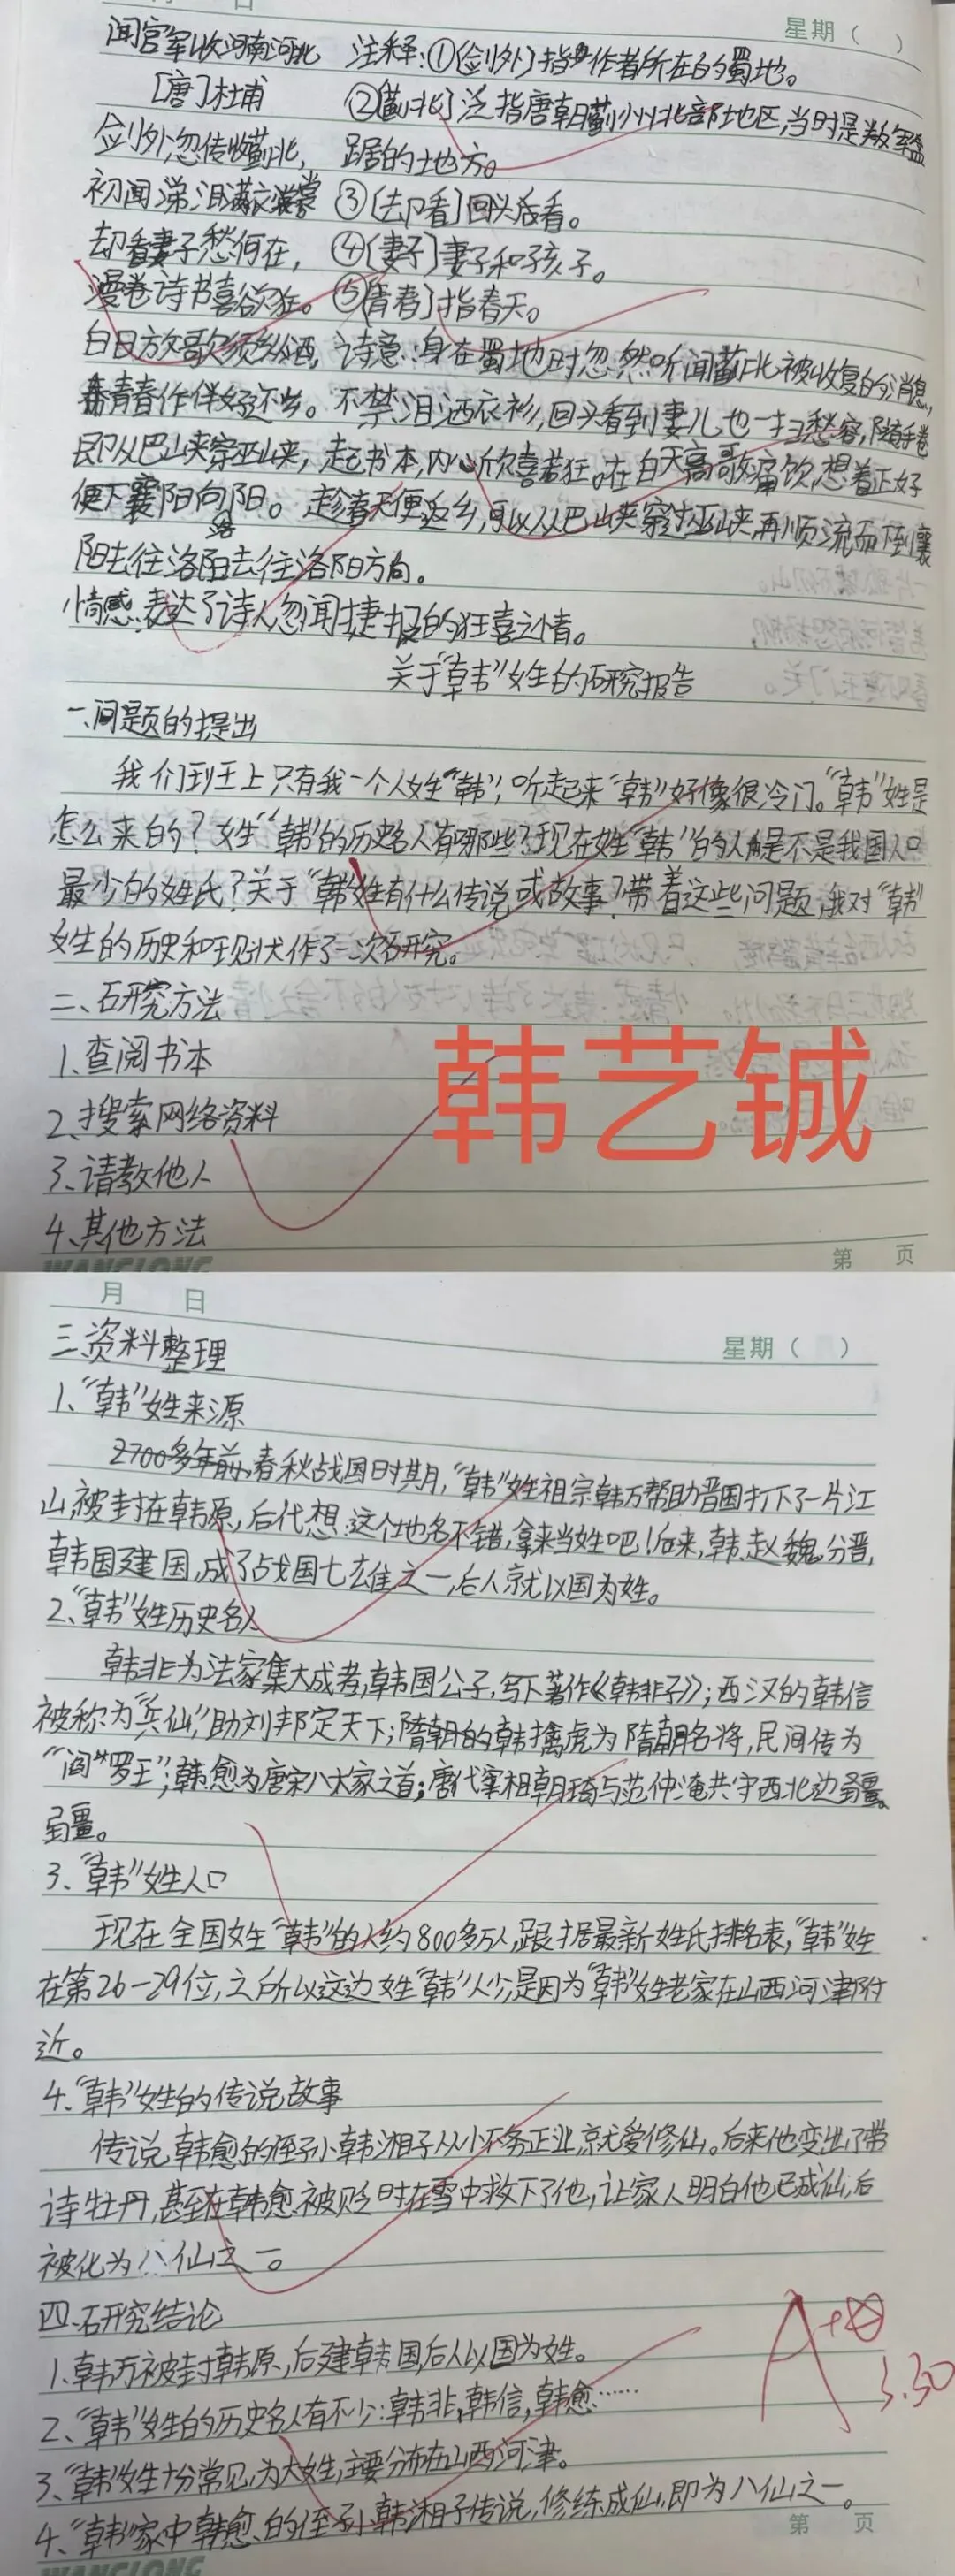 日
星期（ ）
闻官军收河南河北 注释:①[剑外]指作者所在的蜀地。
[唐]杜甫 ②[蓟北]泛指唐朝蓟州北部地区,当时是叛军盘
剑外忽传收蓟北, 踞的地方。
初闻涕泪满衣裳 ③[却看]回头后看。
却看妻子愁何在, ④[妻子]妻子和孩子。
漫卷诗书喜欲狂。 ⑤[青春]指春天。
白日放歌须纵酒, 诗意:身在蜀地时忽然听闻蓟北被收复的消息,
青春作伴好还乡。 不禁泪洒衣衫,回头看到妻儿也一扫愁容,随手卷
即从巴峡穿巫峡, 起书本,内心欣喜若狂。在白天高歌痛饮,想着正好
便下襄阳向洛阳。 趁春天便返乡,可以从巴山峡穿过巫山峡再顺流而下到襄
阳去往洛阳去往洛阳方向。
情感:表达了诗人忽闻捷报的狂喜之情。
关于“韩”姓的研究报告
一、问题的提出
我们班上只有我一个人姓“韩”,听起来“韩”好像很冷门。“韩”姓是
怎么来的?姓“韩”的历史名人有哪些?现在姓“韩”的人是不是我国人口
最少的姓氏?关于“韩”姓有什么传说或故事?带着这些问题,我对“韩”
姓的历史和现状作了一次研究。
二、研究方法
1、查阅书本
2、搜索网络资料
3、请教他人
4、其他方法
韩艺铖
WANGLONG
第 页
月 日
星期（ ）
三、资料整理
1、“韩”姓来源
2700多年前,春秋战国时期,“韩”姓祖宗韩万帮助晋国打下了一片江
山,被封在韩原,后代想:这个地名不错,拿来当姓吧!后来,韩、赵、魏分晋,
韩国建国,成了战国七雄之一,后人就以国为姓。
2、“韩”姓历史名人
韩非为法家集大成者,韩国公子,写下著作《韩非子》;西汉的韩信
被称为“兵仙”,助刘邦定天下;隋朝的韩擒虎为隋朝名将,民间传为
“阎罗王”;韩愈为唐宋八大家之首;唐代宰相朝琦与范仲淹共守西北边疆。
疆。
3、“韩”姓人口
现在全国姓“韩”的人约800多万人,跟据最新姓氏排名表,“韩”姓
在第26-29位,之所以这边姓“韩”人少,是因为“韩”姓老家在山西河津附
近。
4、“韩”姓的传说故事
传说,韩愈的侄孙韩湘子从小不务正业,就爱修仙。后来他变出了带
诗牡丹,甚至在韩愈被贬时在雪中救下了他,让家人明白他已成仙,后
被化为八仙之一。
四、研究结论
1、韩万被封韩原,后建韩国,后人以国为姓。
2、“韩”姓的历史名人有不少:韩非,韩信,韩愈……
3、“韩”姓十分常见,为大姓,主要分布在山西河津。
4、“韩”家中韩愈的侄孙韩湘子传说,修练成仙,即为八仙之一。
A+
3.30
第 页
WANGLONG